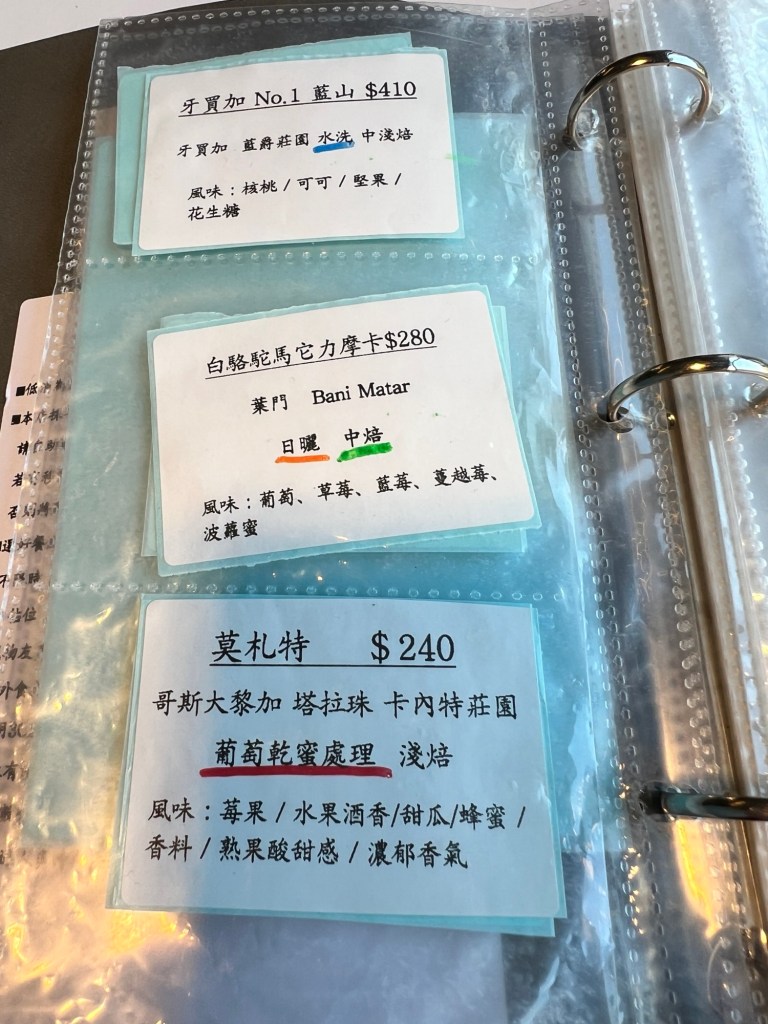 牙買加 No.1 藍山 $410
牙買加 藍爵莊園 水洗 中淺焙
風味：核桃 / 可可 / 堅果 /
花生糖
白駱駝馬它力摩卡$280
葉門 Bani Matar
日曬 中焙
風味：葡萄、草莓、藍莓、蔓越莓、
波蘿蜜
莫札特 $240
哥斯大黎加 塔拉珠 卡內特莊園
葡萄乾蜜處理 淺焙
風味：莓果 / 水果酒香/甜瓜/蜂蜜 /
香料 / 熟果酸甜感 / 濃郁香氣